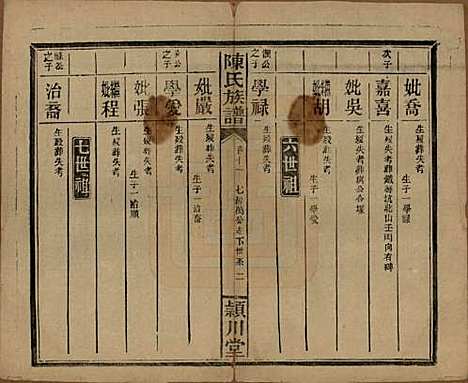 妣喬
生歿葬失考
生子一學祿
次子
嘉喜
生歿失考葬鐵
坑北山壬丙向有碑
妣吳
生歿葬與公合塚
妣胡
生歿葬失考
生子一學愛
六世祖
之子
學祿
生歿葬失考
陳氏族譜
卷十二
七
公位下世系
二
潁川堂
妣嚴
生歿葬失考
生子一治喬
公
之子
學愛
生歿葬失考
妣張
生歿葬失考
生子一治順
妣程
生歿葬失考
七世祖
公
之子
治喬
生歿葬失考